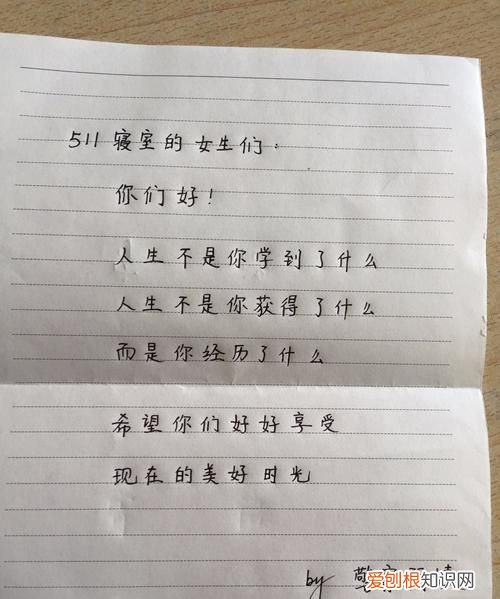 511寝室的女生们：
你们好！
人生不是你学到了什么
人生不是你获得了什么
而是你经历了什么
希望你们好好享受
现在的美好时光
by
爱刨根知识网
www.baogenzhishi.com